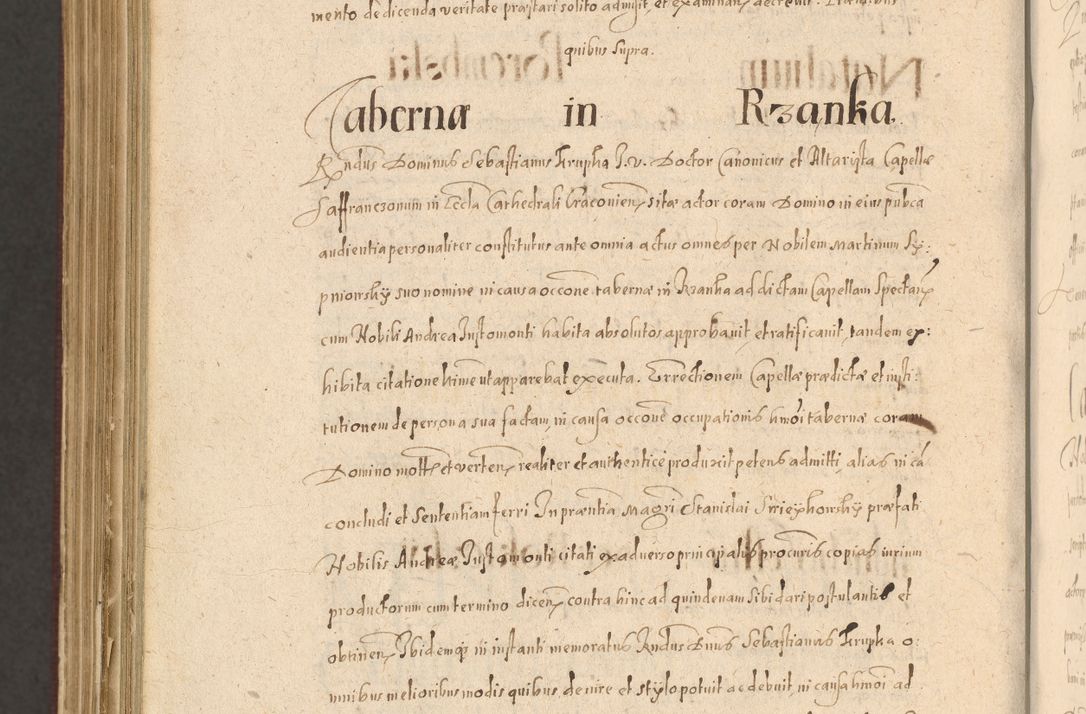 mento de dicenda veritate præstari solito admisit, et examinan decrevit.
quibus supra.
Taberna in Rząnka.
Rndus Dominus Sebastianus Krupka J. v. Doctor Canonicus et Altarista Capellæ
Saffranczonum in Eccla Cathedrali Cracovien sitæ actor coram Domino in eius publca
audientia personaliter constitutus ante omnia actus omnes per Nobilem Martinum Sy:
pniowsky suo nomine in causa occone tabernæ in Rzanka ad dictam Capellam Spectan
cum Nobili Andrea Justomonti habita absolutos, approbavit, et ratificavit, tandem ex:
hibita citatione hinc ut apparebat executa. Errectionem Capellæ prædictæ et insti:
tutionem de persona sua factam, in causa occone occupationis hmoi tabernæ coram
Domino mott et verten realiter et authentice produxit petens admitti, alias in ca
concludi et Sententiam ferri In præntia Magri Stanislai Swieykowsky præfati
Nobilis Andreæ Justomonti citati ex adverso principalis procuris copias iurium
productorum cum termino dicen contra hinc ad quindenam sibi dari postulantis et
obtinen Ibidemq in instanti memoratus Rndus Dnus Sebastianus Krupka o:
mnibus melioribus modis quibus de iure et stylo potuit ac debuit, in causa hmoi ad